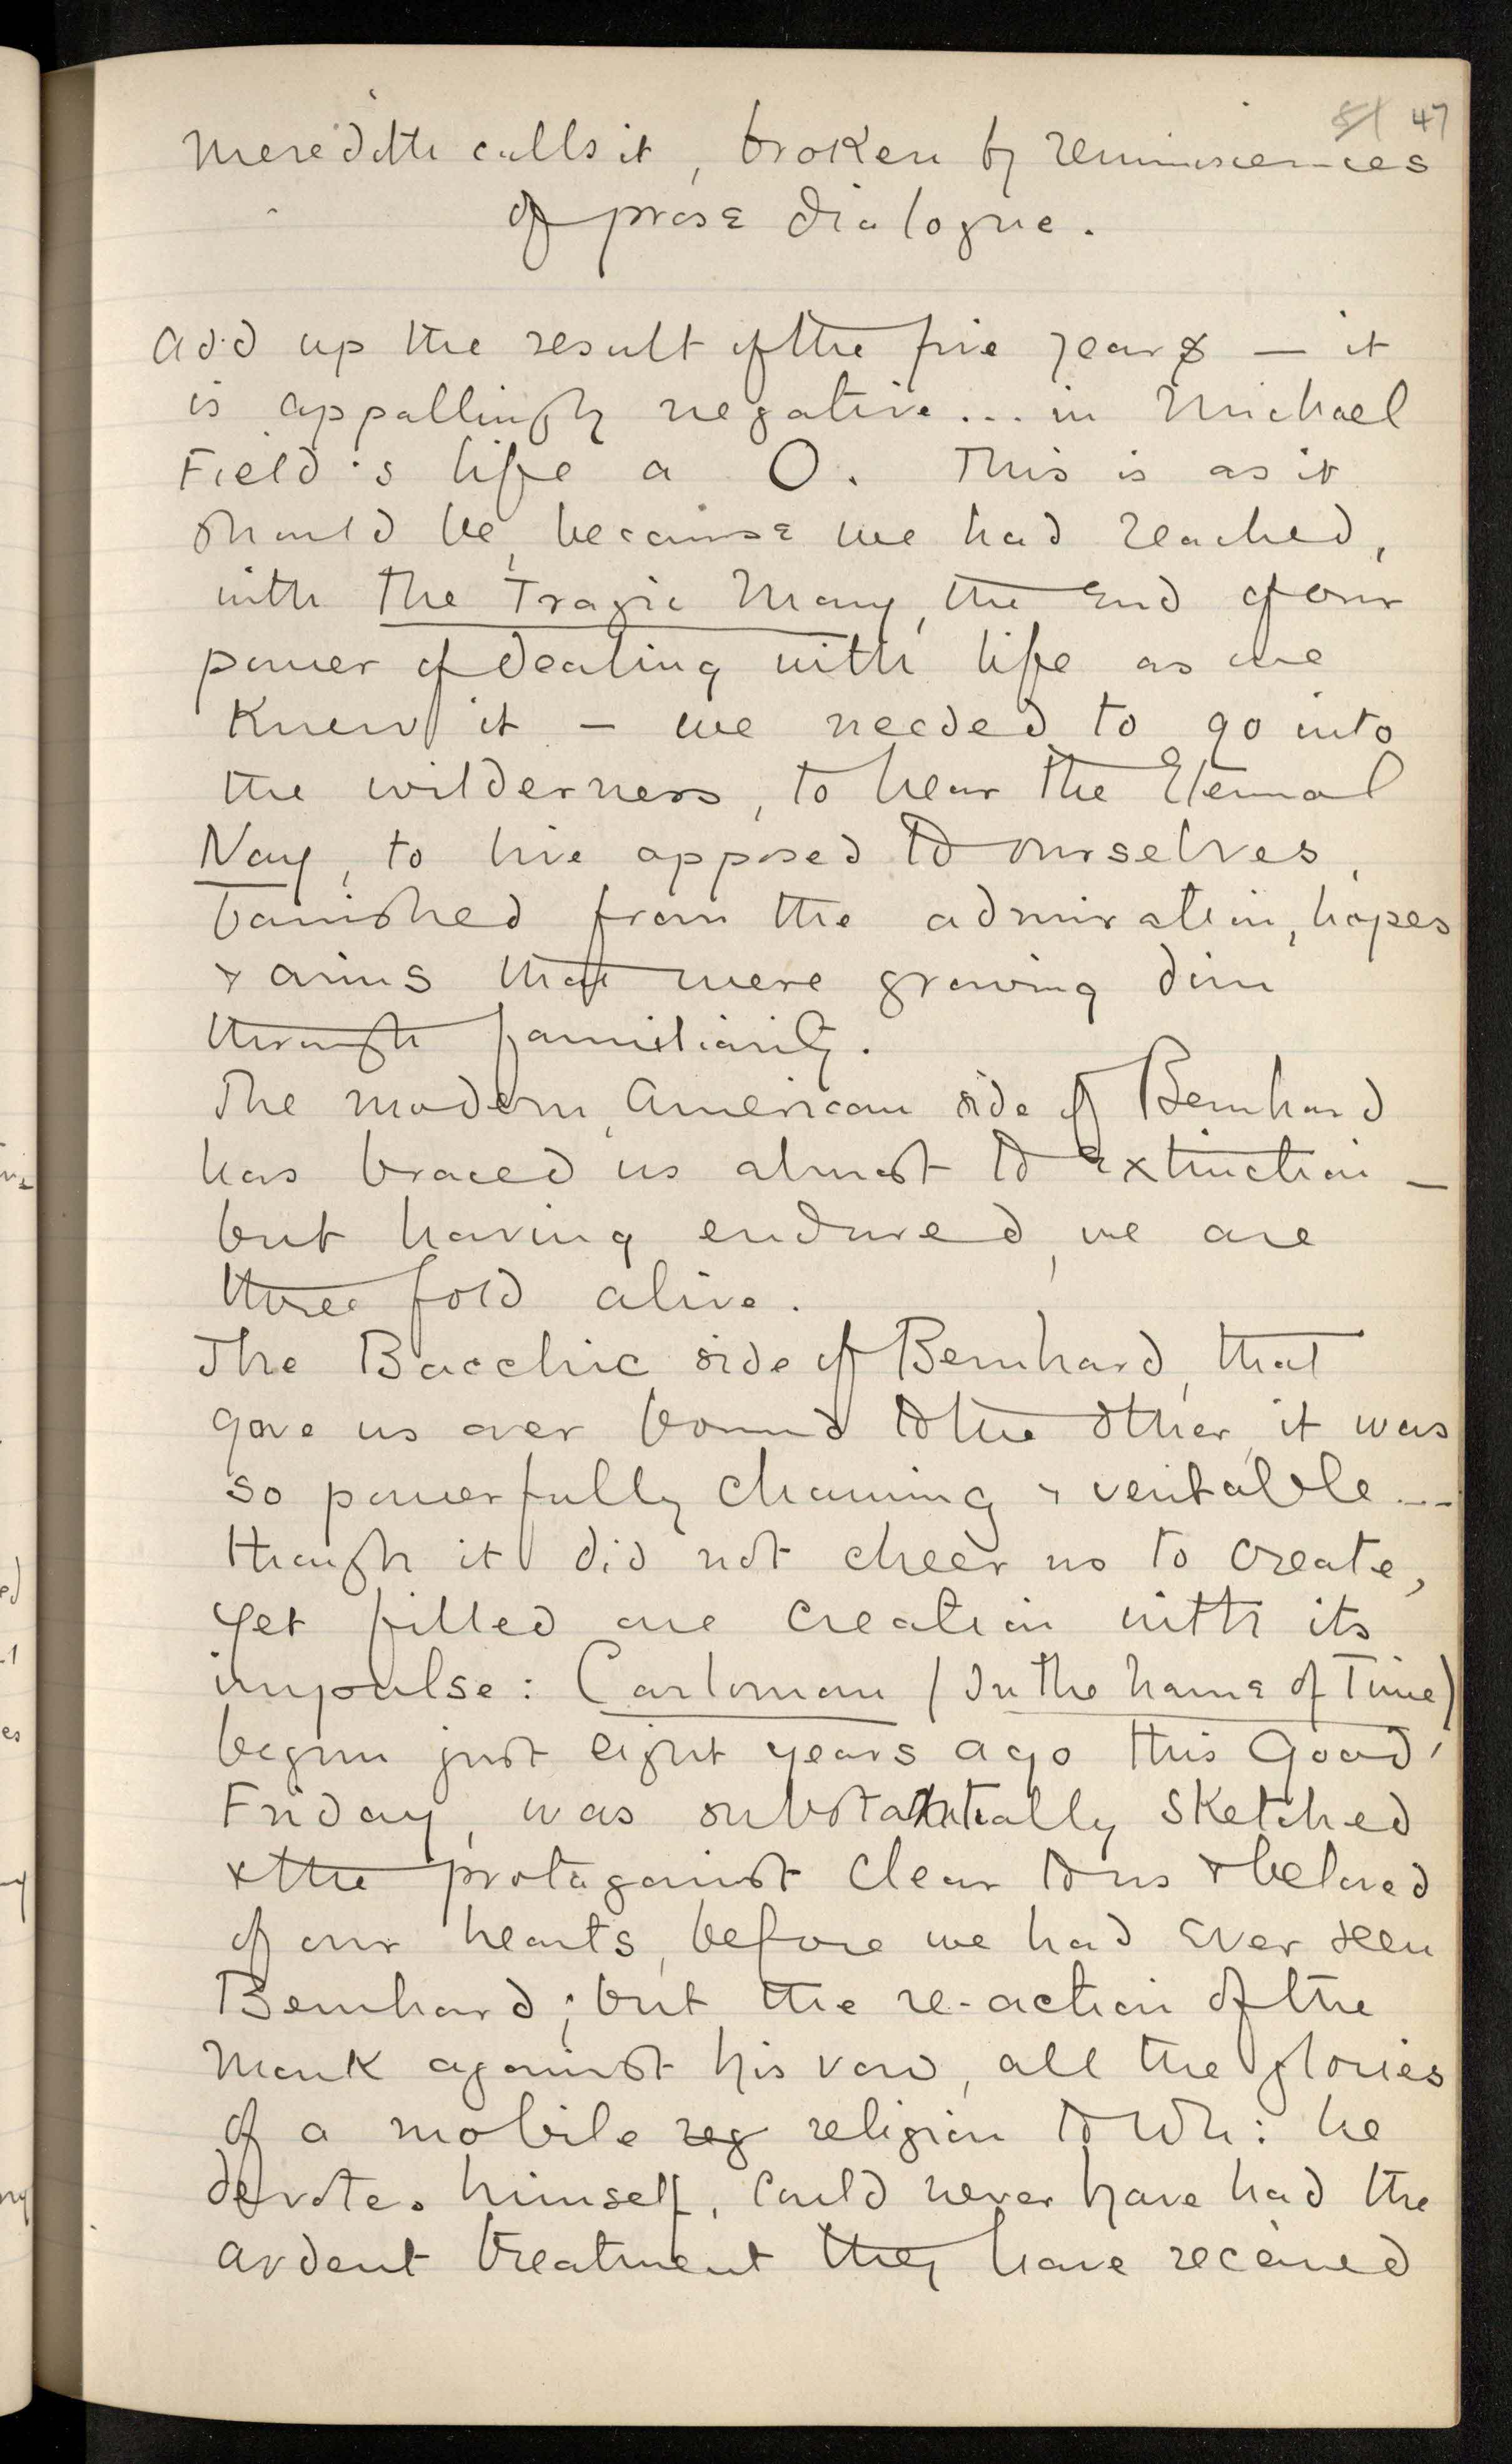 51 47
Meredith calls it, broken by reminiscences
of prose dialogue.
Add up the result of the five years — it
is appallingly negative... in Michael
Field's life a O. This is as it
should be, because we had reached,
with The Tragic Mary, the End of our
power of dealing with life as we
knew it — we needed to go into
the wilderness, to hear the Eternal
Nay, to live opposed to ourselves,
banished from the admiration, hopes
& aims that were growing dim
through familiarity.
The modern, American side of Bernhard
has braced us almost to extinction —
but having endured, we are
three fold alive.
The Bacchic side of Bernhard, that
gave us over bound to the other, it was
so powerfully charming & veritable...
though it did not cheer us to create,
yet filled one creation with its
impulse: Carloman (In the Name of Time)
begun just eight years ago this Good
Friday, was substantially sketched
& the protagonist clear to us & beloved
of our hearts, before we had Ever seen
Bernhard; but the re-action of the
Monk against his vow, all the glories
of a mobile reg religion to wh: he
devotes himself, could never have had the
ardent treatment they have received